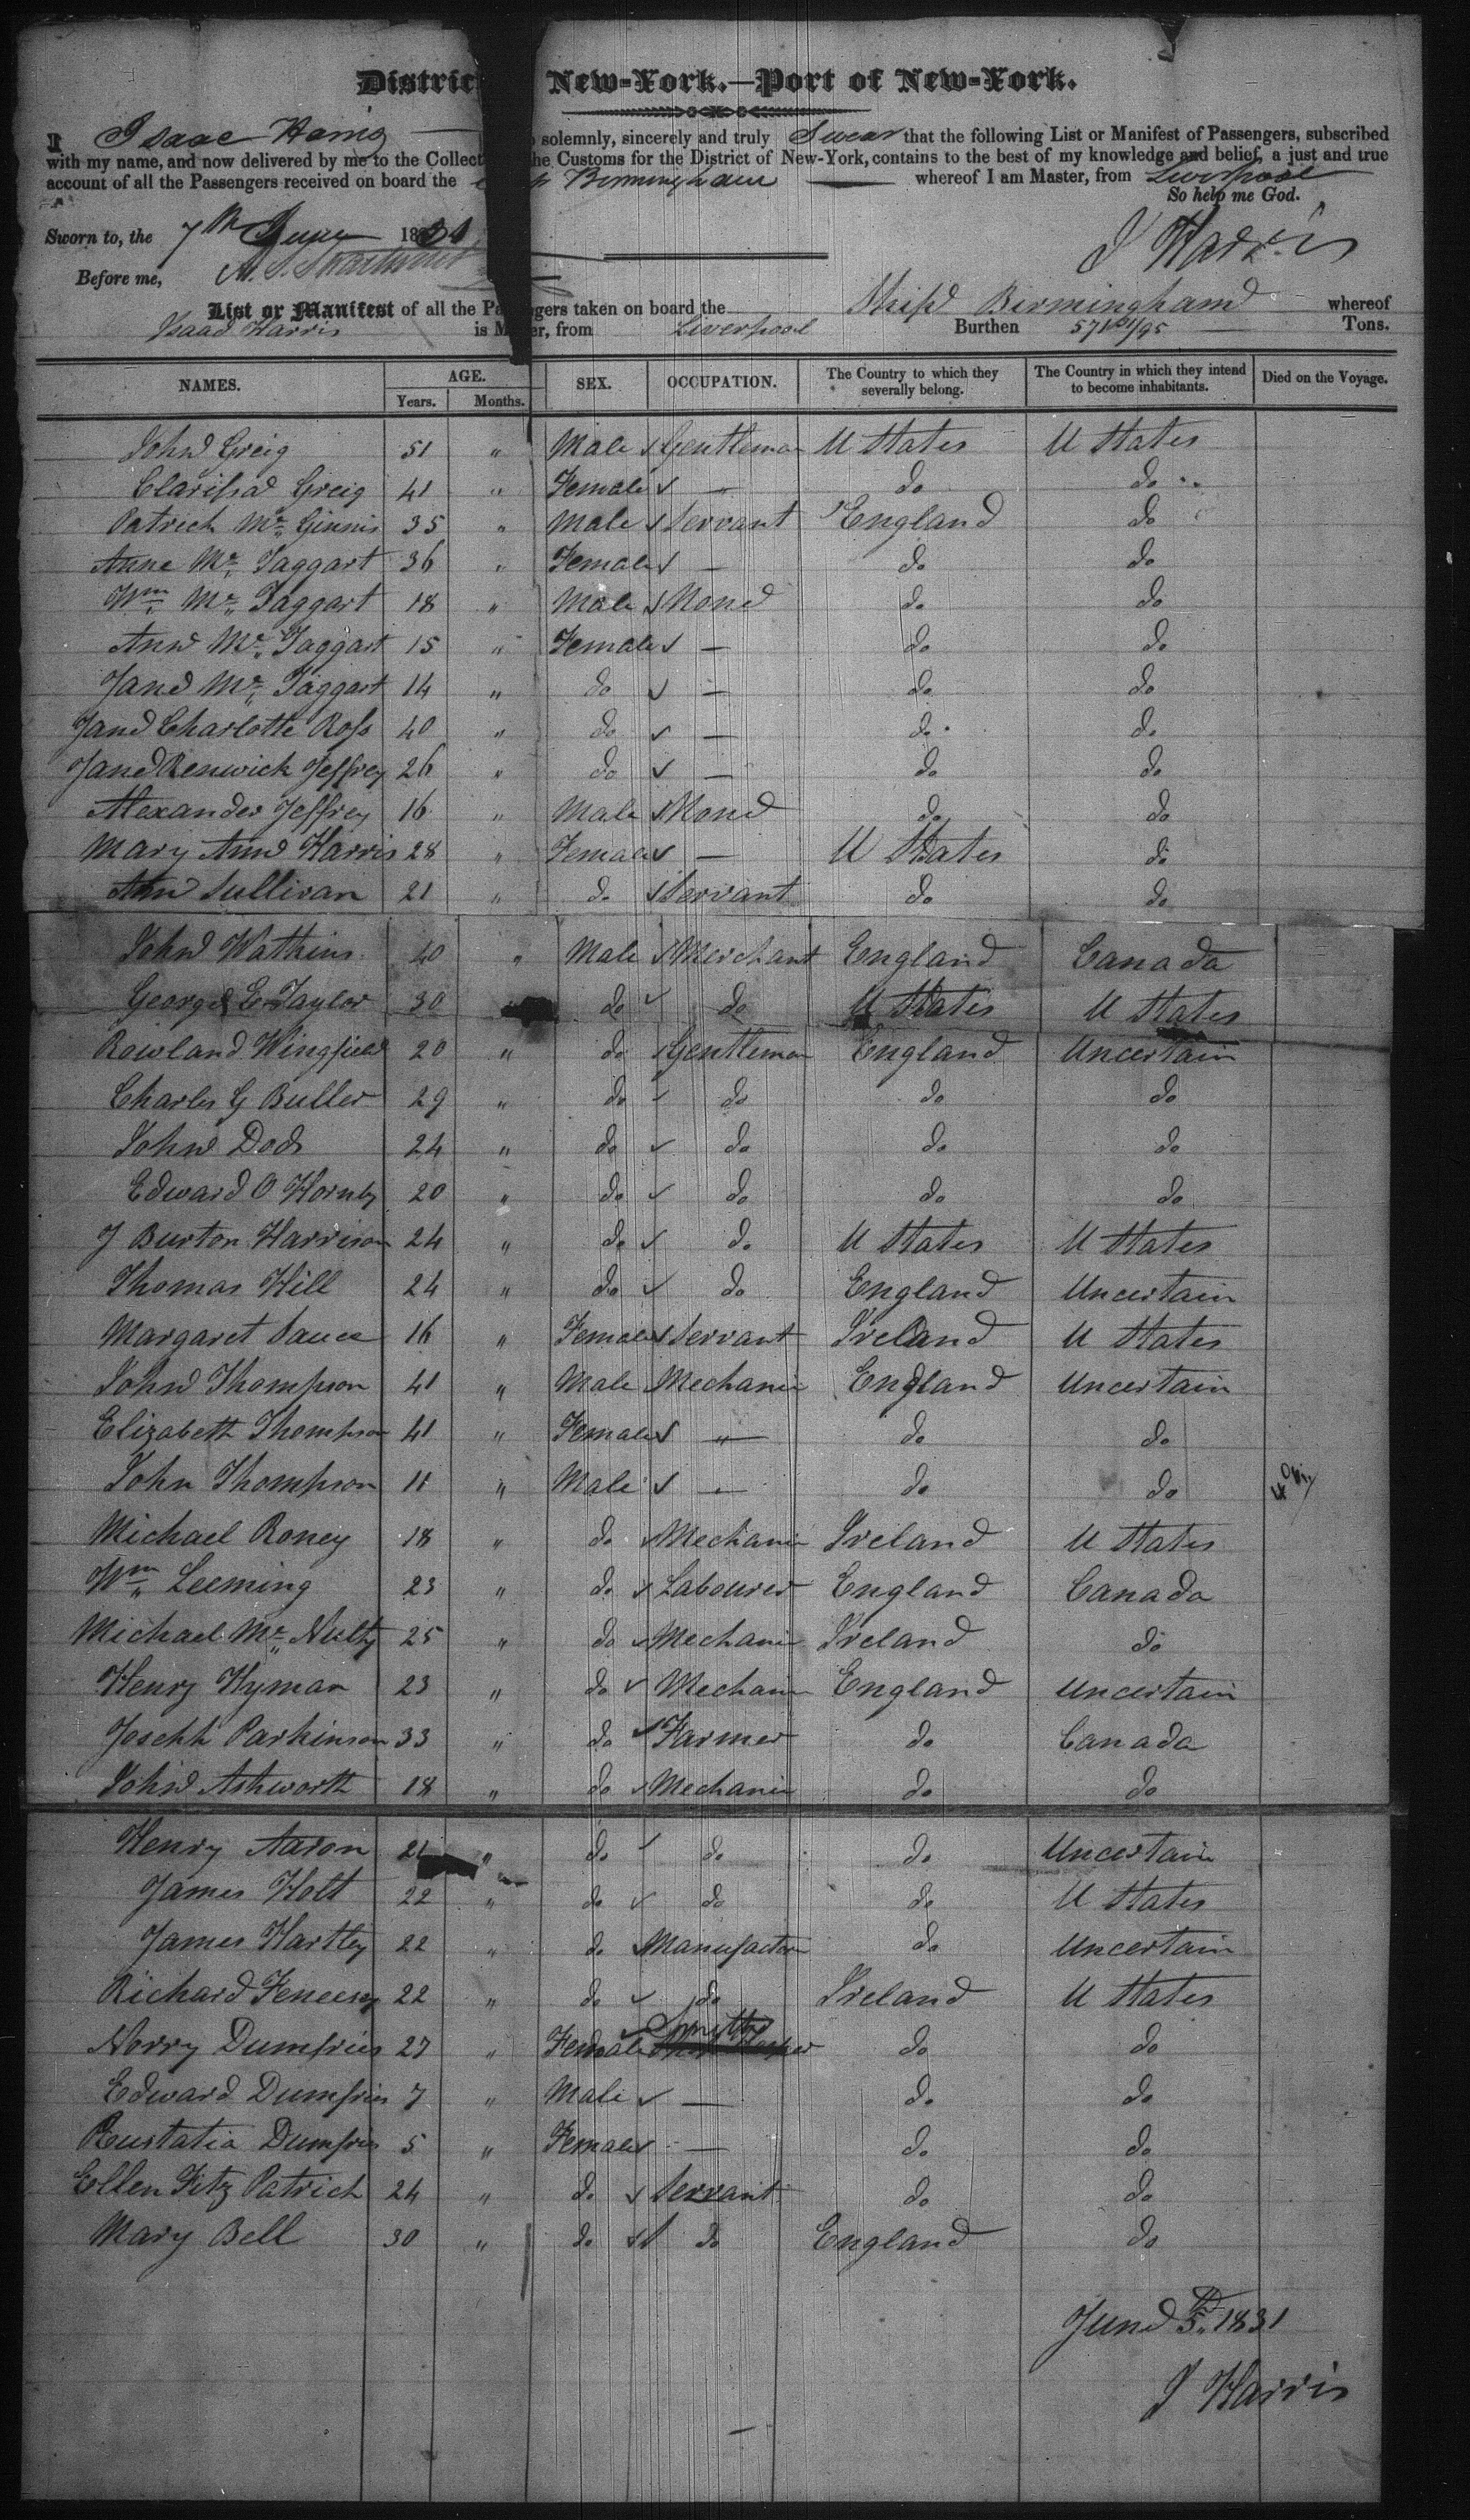 District New-York.—Port of New-York.
I Isaac Harris solemnly, sincerely and truly Swear that the following List or Manifest of Passengers, subscribed
with my name, and now delivered by me to the Collect he Customs for the District of New-York, contains to the best of my knowledge and belief, a just and true
account of all the Passengers received on board the Ship Birmingham whereof I am Master, from Liverpool
So help me God.
Sworn to, the 7th June 1831
I Harris
Before me,
List or Manifest of all the Pa gers taken on board the Ship Birmingham whereof
Isaac Harris is M er, from Liverpool Burthen 571 /95 Tons.
NAMES. AGE. Years. Months. SEX. OCCUPATION. The Country to which they severally belong. The Country in which they intend to become inhabitants. Died on the Voyage.
John Greig 51 " Male Gentleman U States U States
Clarissa Greig 41 " Female — do do
Patrick Mc Ginnis 35 " Male Servant England do
Anne Mc Taggart 36 " Female — do do
Wm Mc Taggart 18 " Male None do do
Ann Mc Taggart 15 " Female — do do
Jane Mc Taggart 14 " do — do do
Jane Charlotte Ross 40 " do — do do
Jane Renwick Jeffrey 26 " do — do do
Alexander Jeffrey 16 " Male None do do
Mary Ann Harris 28 " Female — U States do
Ann Sullivan 21 " do Servant do do
John Watkins 40 " Male Merchant England Canada
George E Taylor 30 do do U States U States
Rowland Wingfield 20 " do Gentleman England Uncertain
Charles G Buller 29 " do do do do
John Dods 24 " do do do do
Edward O Hornby 20 " do do do do
J Burton Harrison 24 " do do U States U States
Thomas Hill 24 " do do England Uncertain
Margaret 16 " Female Servant Ireland U States
John Thompson 41 " Male Mechanic England Uncertain
Elizabeth Thompson 41 " Female " do do
John Thompson 11 " Male — do do
Michael Roney 18 " do Mechanic Ireland U States
Wm Leeming 23 " do Labourer England Canada
Michael Mc Nulty 25 " do Mechanic Ireland do
Henry Hyman 23 " do Mechanic England Uncertain
Joseph Parkinson 33 " do Farmer do Canada
John Ashworth 18 " do Mechanic do do
Henry Aaron 21 " do do do Uncertain
James Holt 22 " do do do U States
James Hartley 22 " do Manufacturer do Uncertain
Richard 22 " do do Ireland U States
Norry Dumfries 27 " Female do do
Edward Dumfries 7 " Male — do do
Eustatia Dumfries 5 " Female — do do
Ellen Fitz Patrick 24 " do Servant do do
Mary Bell 30 " do do England do
June 5th 1831
I Harris